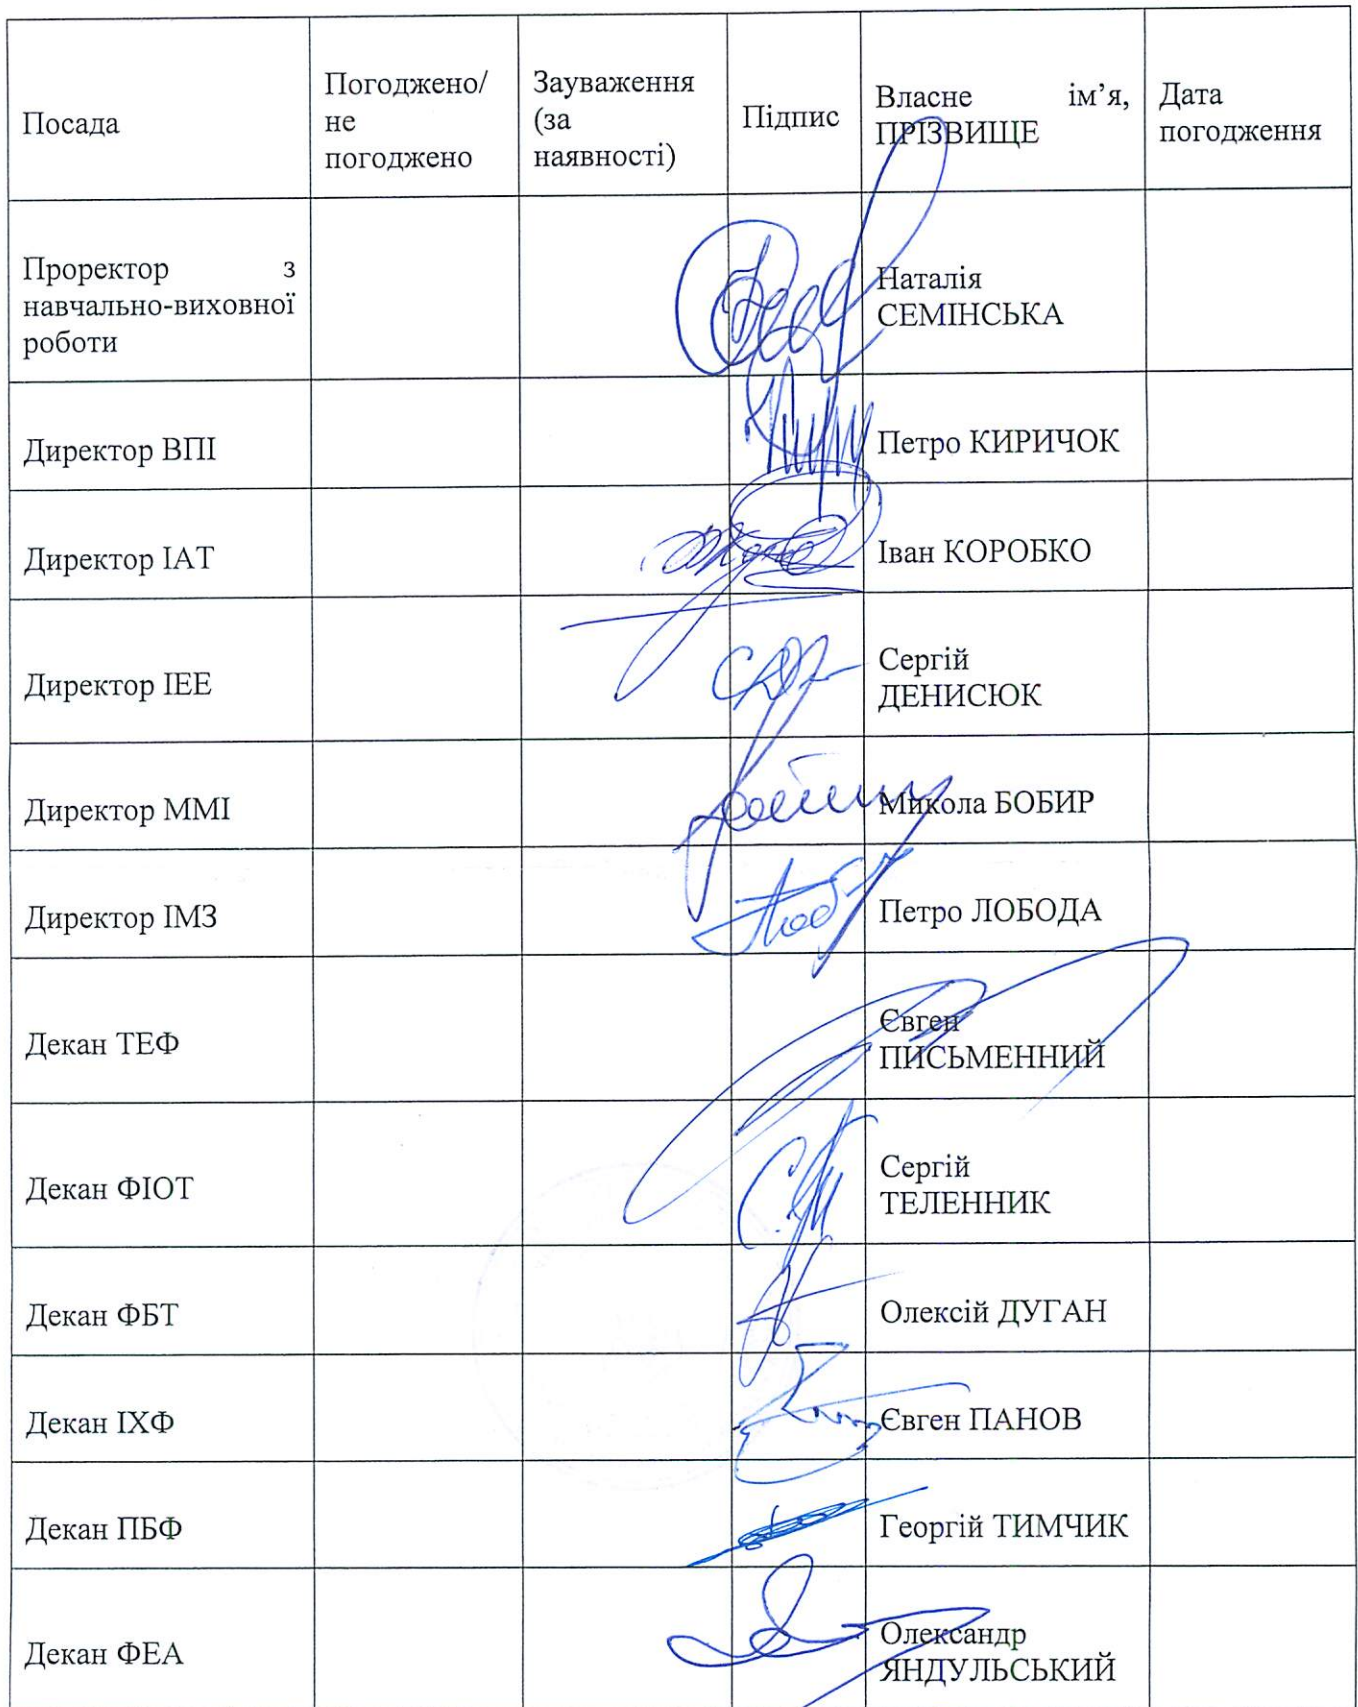 Посада
Погоджено/
не
погоджено
Зауваження
(за
наявності)
Підпис
Власне ім’я,
ПРІЗВИЩЕ
Дата
погодження
Проректор з
навчально-виховної
роботи
Наталія
СЕМІНСЬКА
Директор ВПІ
Петро КИРИЧОК
Директор ІАТ
Іван КОРОБКО
Директор ІЕЕ
Сергій
ДЕНИСЮК
Директор ММІ
Микола БОБИР
Директор ІМЗ
Петро ЛОБОДА
Декан ТЕФ
Євген
ПИСЬМЕННИЙ
Декан ФІОТ
Сергій
ТЕЛЕННИК
Декан ФБТ
Олексій ДУГАН
Декан ІХФ
Євген ПАНОВ
Декан ПБФ
Георгій ТИМЧИК
Декан ФЕА
Олександр
ЯНДУЛЬСЬКИЙ